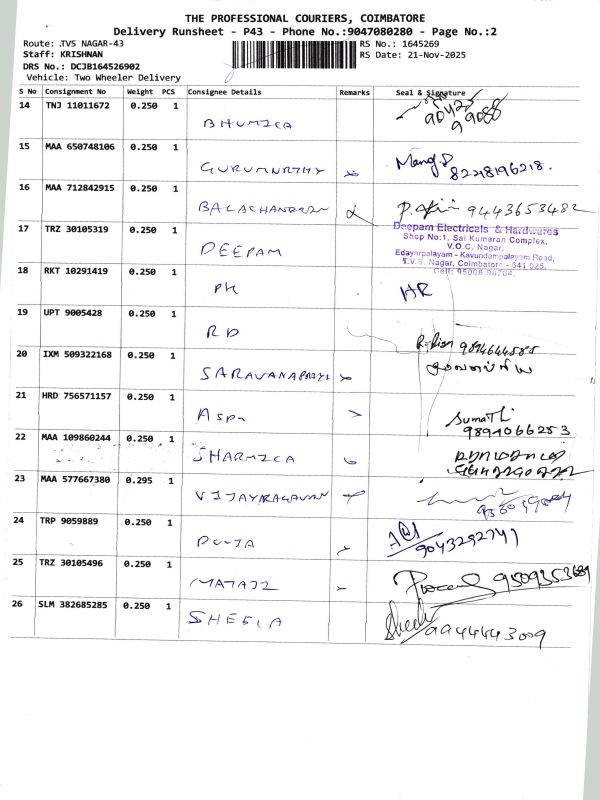 THE PROFESSIONAL COURIERS, COIMBATORE
Delivery Runsheet - P43 - Phone No.:9047080280 - Page No.:2
Route: TVS NAGAR-43
RS No.: 1645269
Staff: KRISHNAN
RS Date: 21-Nov-2025
DRS No.: DCJB164526902
Vehicle: Two Wheeler Delivery
S No Consignment No Weight PCS Consignee Details Remarks Seal & Signature
14 TNJ 11011672 0.250 1
BHUMICA 90422
99088
15 MAA 650748106 0.250 1
GURUMURTHY 8248196218.
16 MAA 712842915 0.250 1
BALACHANDRAN 9443653482
17 TRZ 30105319 0.250 1
DEEPAM
Deepam Electricals & Hardwares
Shop No:1, Sai Kumaran Complex,
V.O.C. Nagar,
Edayarpalayam - Kavundampalayam Road,
T.V.S. Nagar, Coimbatore - 641 025.
18 RKT 10291419 0.250 1
PK HR
19 UPT 9005428 0.250 1
RD
20 IXM 509322168 0.250 1
SARAVANAPRIYA
21 HRD 756571157 0.250 1
Sumathi
9894066253
22 MAA 109860244 0.250 1
SHARMICA
23 MAA 577667380 0.295 1
VIJAYARAGAVAN
24 TRP 9059889 0.250 1
POOJA 9043292741
25 TRZ 30105496 0.250 1
MATAJI 9509353689
26 SLM 382685285 0.250 1
SHEELA 9944443009